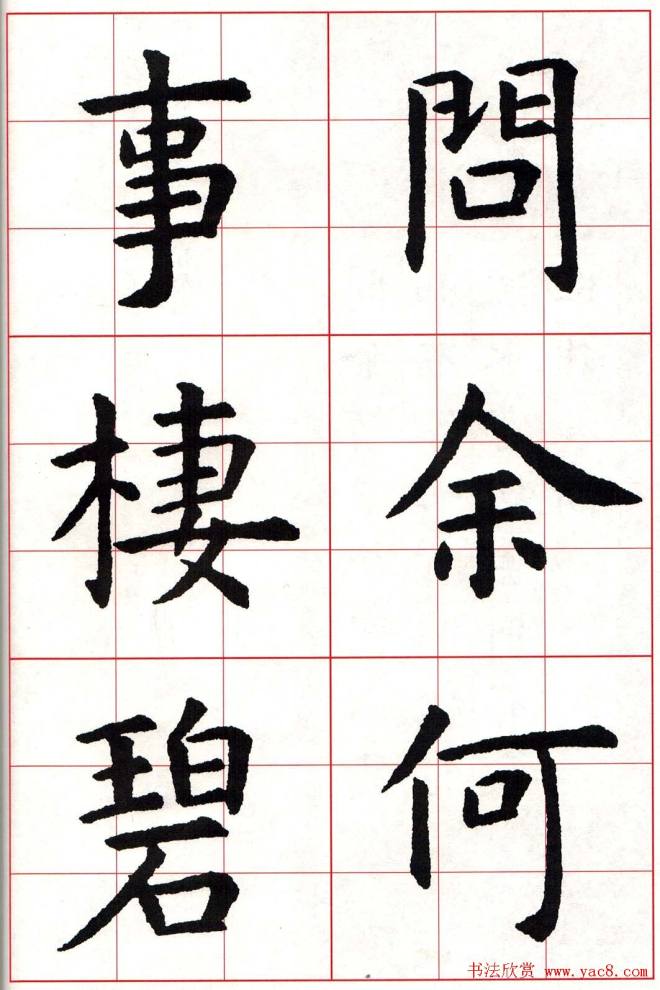 問余何
事棲碧
书法欣赏 www.yac8.com